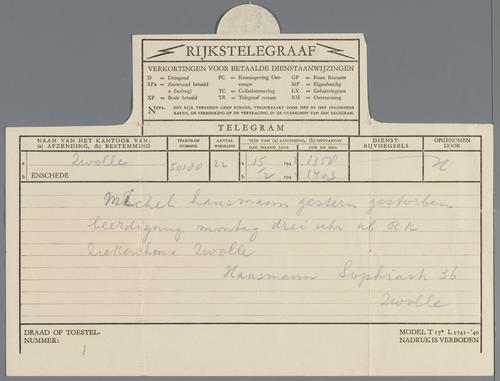 RIJKSTELEGRAAF
VERKORTINGEN VOOR BETAALDE DIENSTAANWIJZINGEN
D = Dringend
RPx = Antwoord betaald x (bedrag)
XP = Bode betaald
PC = Kennisgeving Ontvangst
TC = Collationneering
TR = Telegraaf restant
GP = Poste Restante
MP = Eigenhandig
LX = Geluktelegram
RM = Overseining
NOTA. HET RIJK VERGOEDT GEEN SCHADE, VEROORZAAKT DOOR HET IN HET ONGEREEDE
RAKEN, DE VERMINKING OF DE VERTRAGING IN DE OVERKOMST VAN EEN TELEGRAM.
TELEGRAM
NAAM VAN HET KANTOOR VAN:
(a) AFZENDING, (b) BESTEMMING
TELEGRAM NUMMER
AANTAL WOORDEN
TIJD VAN (a) AANNEMING, (b) ONTVANGST
DAG MAAND JAAR
UUR EN MIN.
DIENST-BIJVOEGSELS
OPGENOMEN DOOR
a Zwolle 50180 22 a 15 194 1358
b ENSCHEDE b /2 194 1403
Michel hansmann gestern gestorben
beerdigung montag drei uhr ab R K
Ziekenhuis Zwolle
Hansmann Sophiastr 36
Zwolle
DRAAD OF TOESTEL-
NUMMER: 1
MODEL T 17* L 1741-'40
NADRUK IS VERBODEN